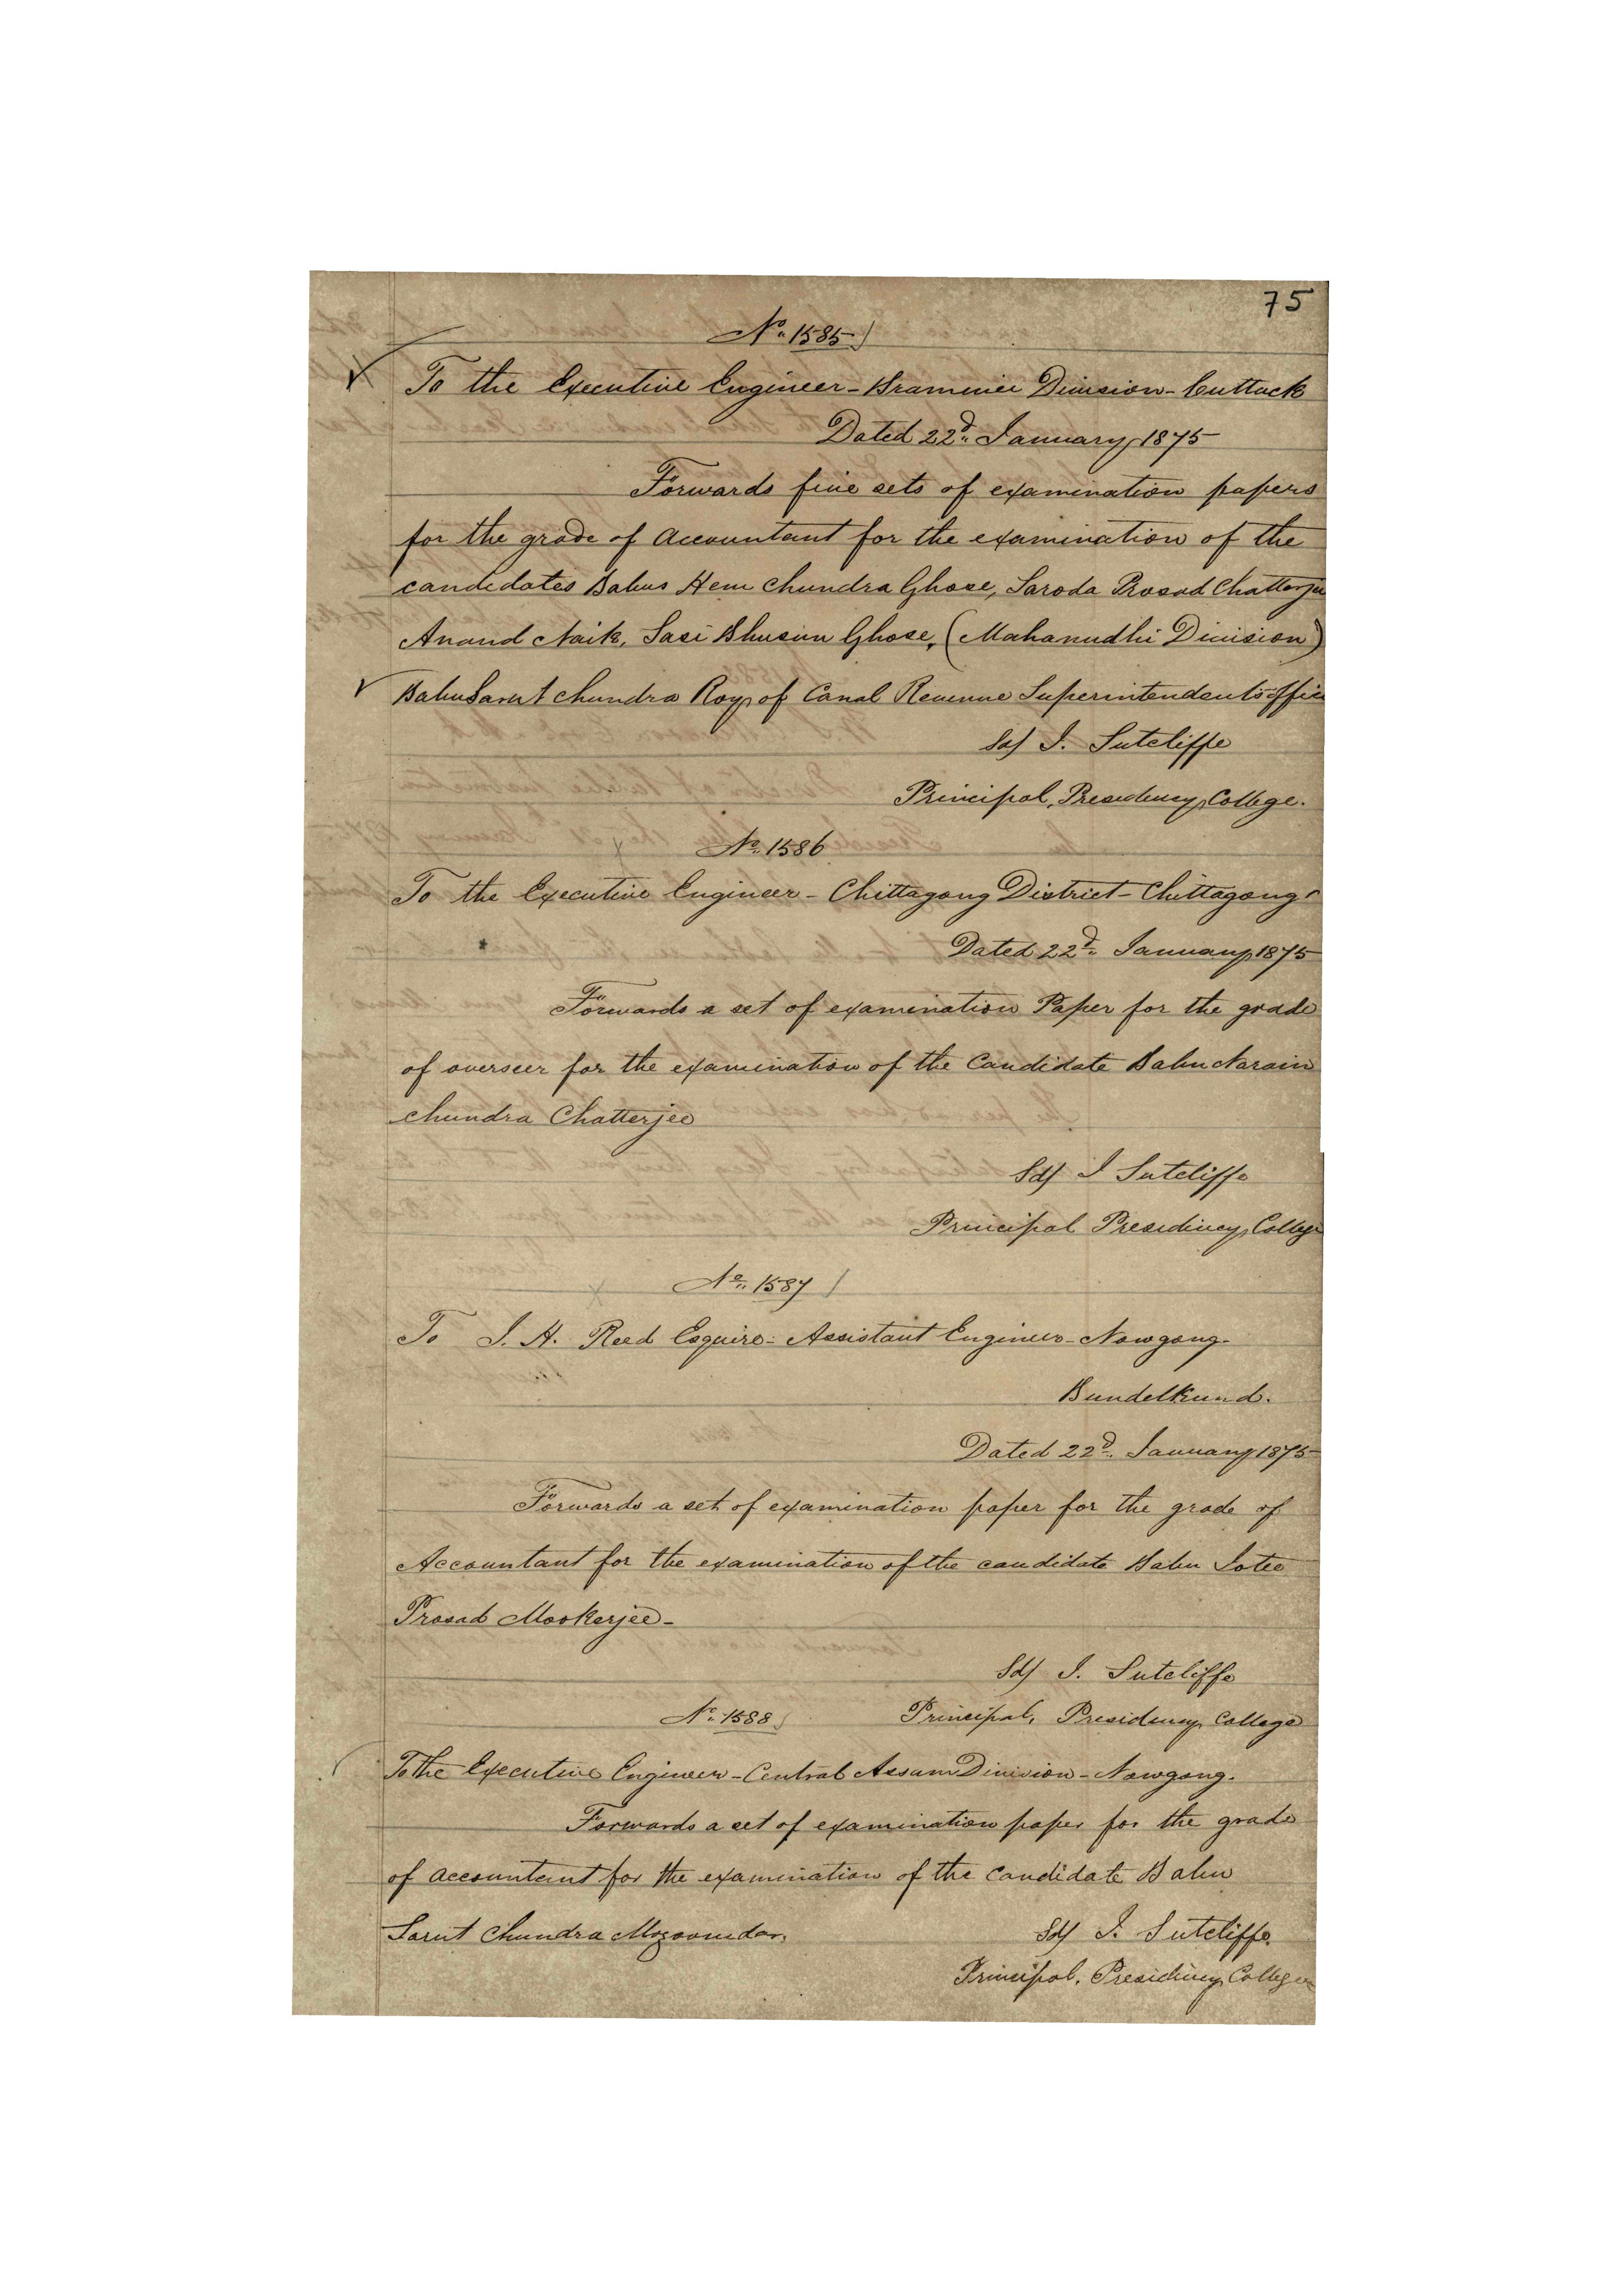 75
No. 1585
To the Executive Engineer - Braminee Division - Cuttack
Dated 22d. January 1875
Forwards five sets of examination papers
for the grade of Accountant for the examination of the
candidates Babus Hem Chundra Ghose, Saroda Prosad Chatterjee
Anand Naik, Sasi Bhusun Ghose, (Mahanudhi Division)
Babu Sarut Chundra Roy of Canal Revenue Superintendent's office
Sd/ J. Sutcliffe
Principal, Presidency College.
No. 1586
To the Executive Engineer - Chittagong District - Chittagong
Dated 22d. January 1875
Forwards a set of examination Paper for the grade
of overseer for the examination of the Candidate Babu Narain
Chundra Chatterjee
Sd/ J Sutcliffe
Principal Presidency College
No. 1587
To J. H. Reed Esquire - Assistant Engineer - Nowgong -
Bundelkund.
Dated 22d. January 1875
Forwards a set of examination paper for the grade of
Accountant for the examination of the candidate Babu Jotee
Prosad Mookerjee -
Sd/ J. Sutcliffe
Principal, Presidency College
No. 1588
To the Executive Engineer - Central Assam Division - Nowgong.
Forwards a set of examination paper for the grade
of accountant for the examination of the Candidate Babu
Sarut Chundra Mozoomdar.
Sd/ J. Sutcliffe
Principal, Presidency College